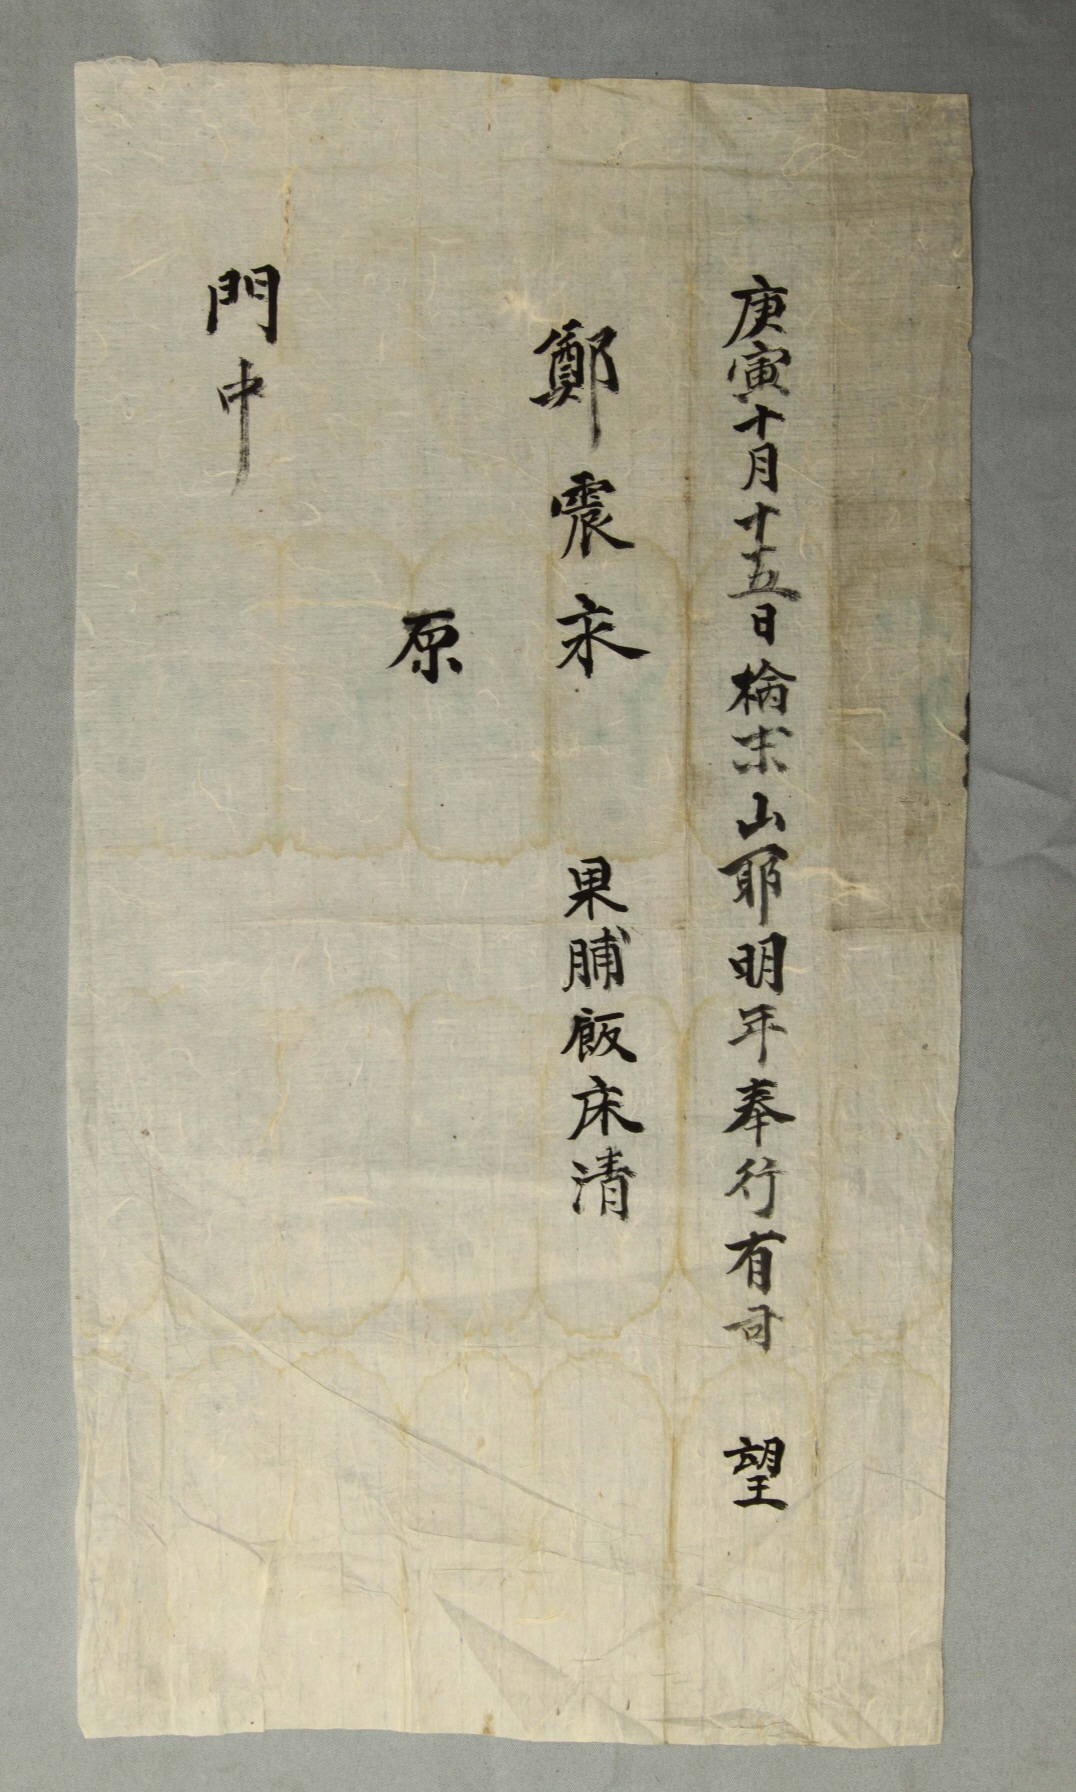 庚寅十月十五日楡山耶明年奉行有司 望
鄭震永 果脯飯床清
原
門中